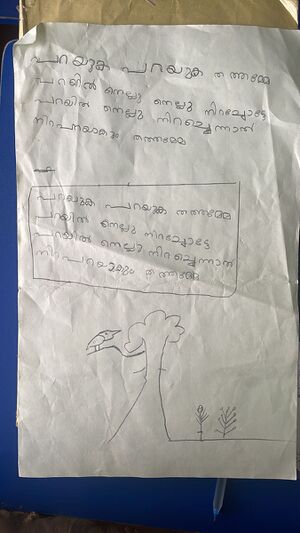 പറയുക പറയുക തത്തമ്മേ
പറയിൽ നെല്ലു നെല്ലു നിറച്ചോട്ടേ
പറയിൽ നെല്ലു നിറച്ചെന്നാൽ
നിറപറയാകും തത്തമ്മേ
പറയുക പറയുക തത്തമ്മേ
പറയിൽ നെല്ലു നിറച്ചോട്ടേ
പറയിൽ നെല്ലു നിറച്ചെന്നാൽ
നിറപറയാകും തത്തമ്മേ